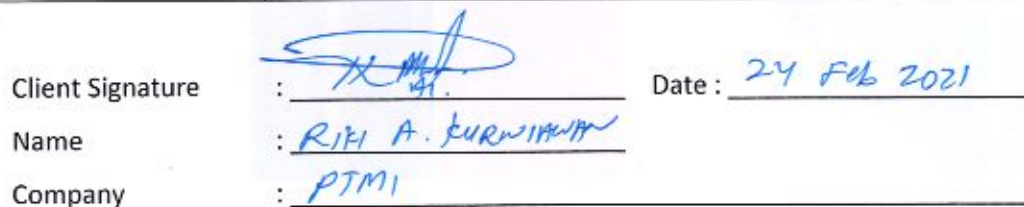 Client Signature : Date : 24 Feb 2021
Name : RIKI A. KURNIAWAN
Company : PTMI